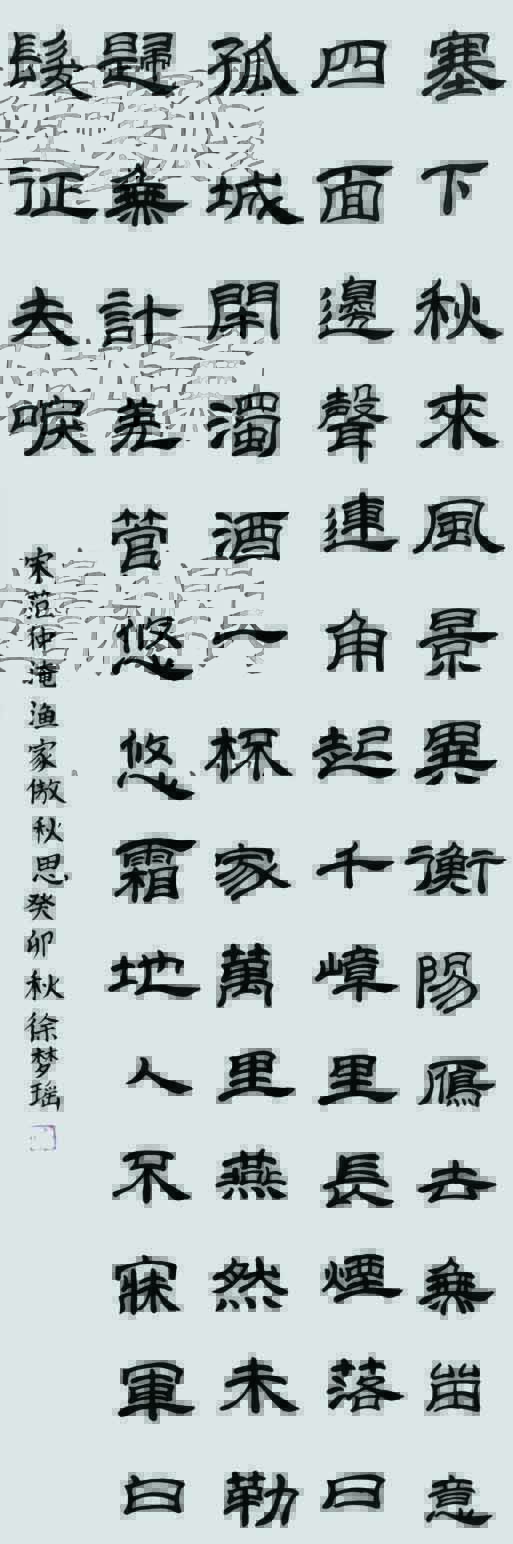 塞下秋來風景異衡陽鴈去無畱意
四面邊聲連角起千嶂里長煙落日
孤城閉濁酒一杯家萬里燕然未勒
歸無計羌管悠悠霜地人不寐軍白
髮征夫唳
宋范仲淹渔家傲秋思癸卯秋徐梦瑶